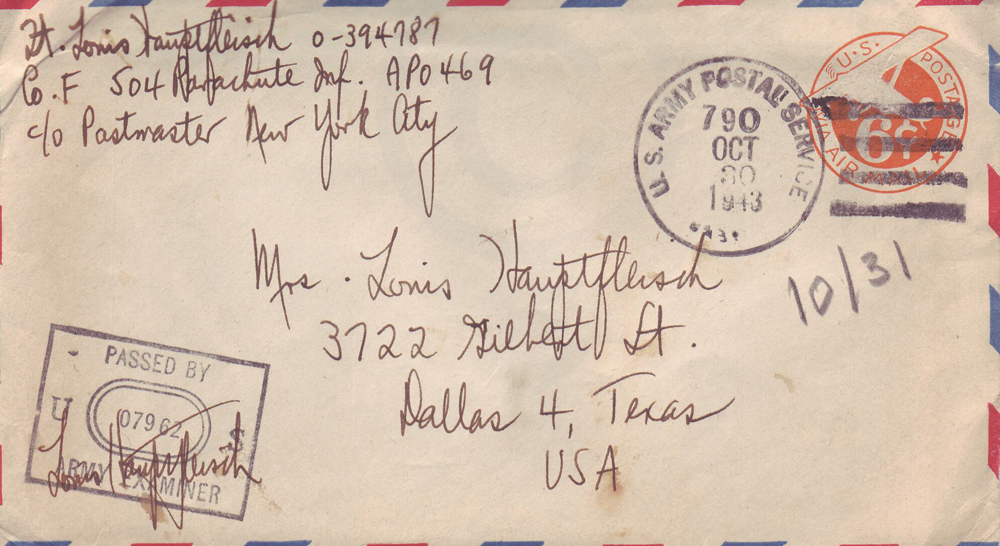 Lt. Louis Hauptfleisch O-394787
Co. F 504 Parachute Inf. APO 469
c/o Postmaster New York City
U.S. ARMY POSTAL SERVICE
790
OCT
30
1943
U.S. POSTAGE
6¢
VIA AIR MAIL
10/31
Mrs. Louis Hauptfleisch
3722 Gilbert St.
Dallas 4, Texas
USA
PASSED BY
U S
07962
ARMY EXAMINER
Louis Hauptfleisch